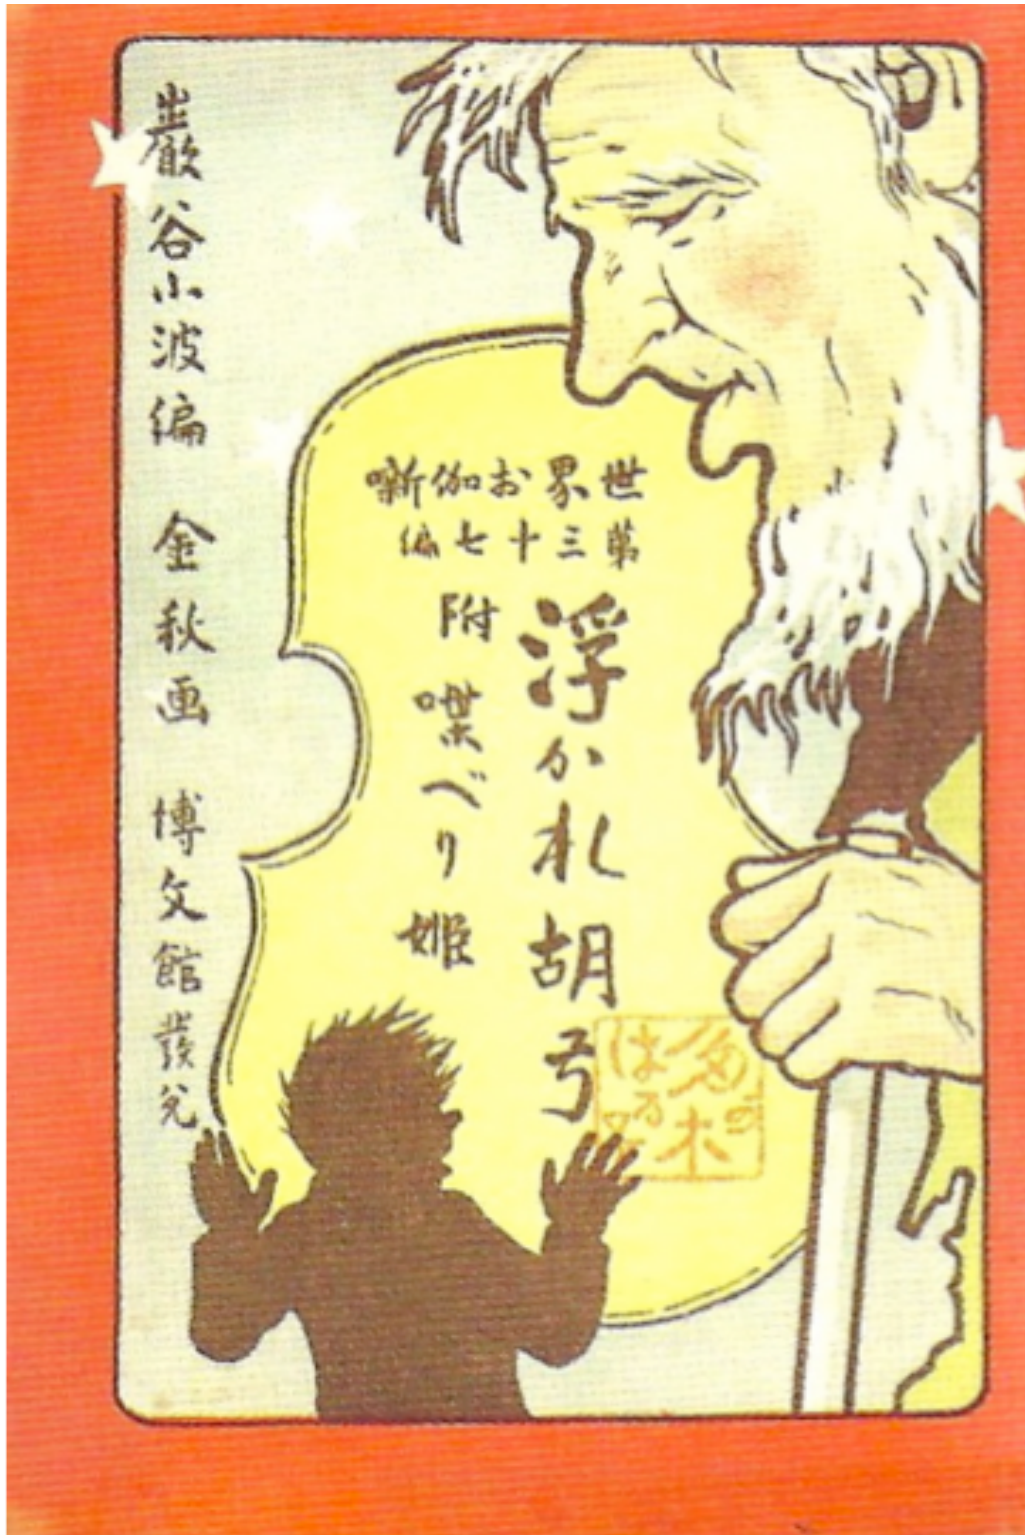 世界お伽噺
第三十七編
浮かれ胡弓
附 喋べり姫
巖谷小波編 金秋画 博文館發兌